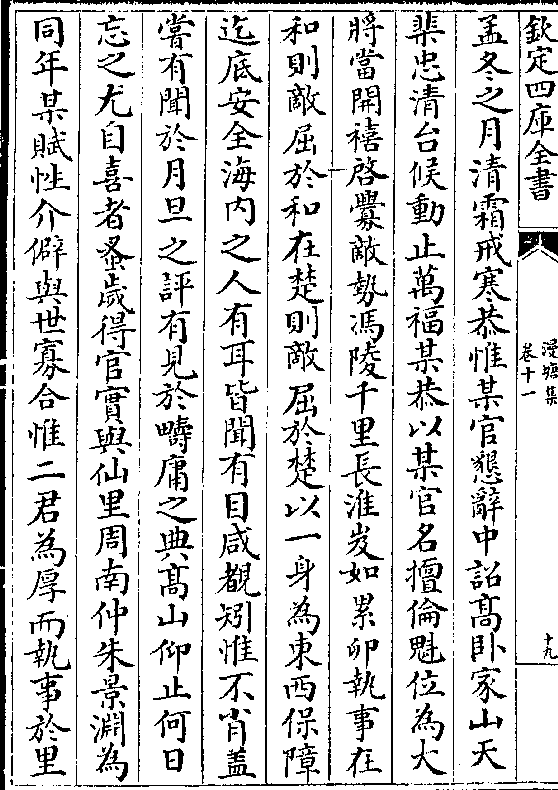 欽定四庫全書
漫塘集
卷十一
十九
孟冬之月清霜戒寒恭惟某官懇辭中詔髙卧家山天
棐忠清台候動止萬福某恭以某官名擅倫魁位為大
將當開禧啓釁敵勢馮陵千里長淮岌如累卵執事在
和則敵屈於和在楚則敵屈於楚以一身為東西保障
迄底安全海内之人有耳皆聞有目咸覩矧惟不肖盖
嘗有聞於月旦之評有見於疇庸之典髙山仰止何日
忘之尤自喜者蚤歲得官實與仙里周南仲朱景淵為
同年某賦性介僻與世寡合惟二君為厚而執事於里